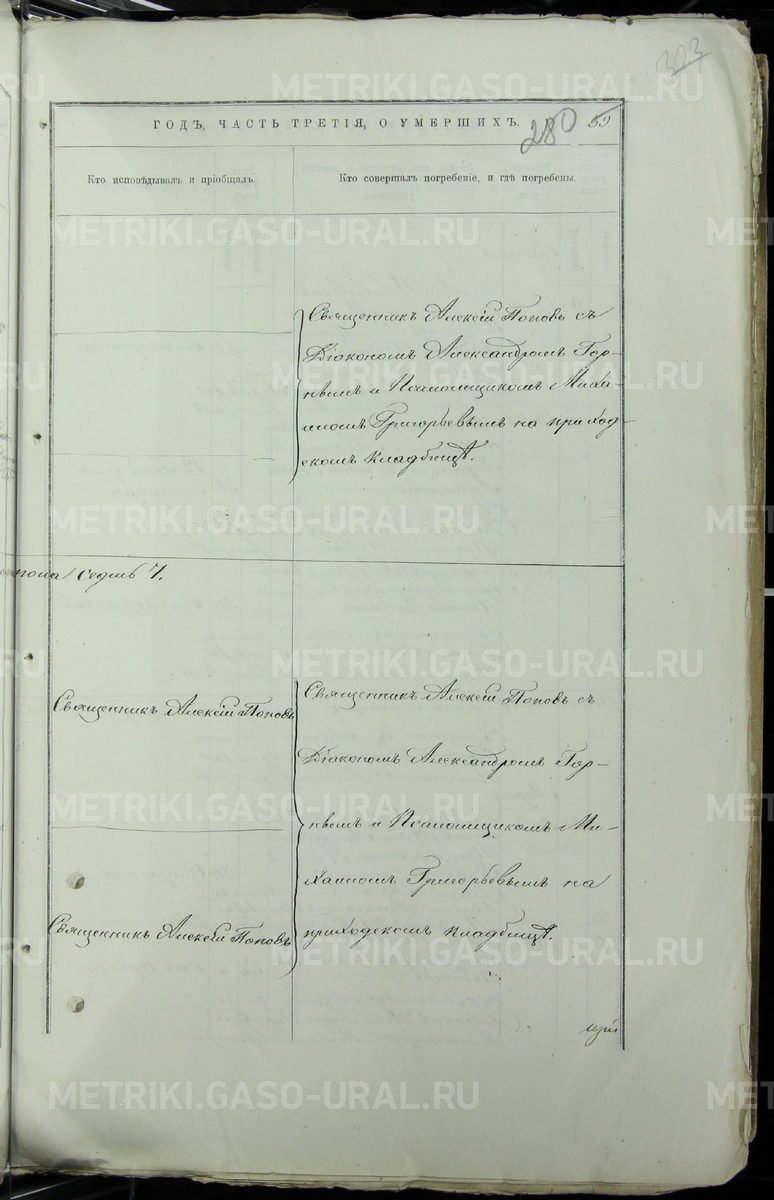 303
ГОДЪ, ЧАСТЬ ТРЕТІЯ, О УМЕРШИХЪ.
280
59
Кто исповѣдывалъ и пріобщалъ.
Кто совершалъ погребеніе, и гдѣ погребены.
Священникъ Алексій Поповъ съ
Діакономъ Александромъ Гор-
нѣмъ и Псаломщикомъ Миха-
иломъ Григорьевымъ на приход-
скомъ кладбищѣ.
седмь 7.
Священникъ Алексій Поповъ
Священникъ Алексій Поповъ съ
Діакономъ Александромъ Гор-
нѣмъ и Псаломщикомъ Ми-
хаиломъ Григорьевымъ на
приходскомъ кладбищѣ.
Священникъ Алексій Поповъ
METRIKI.GASO-URAL.RU